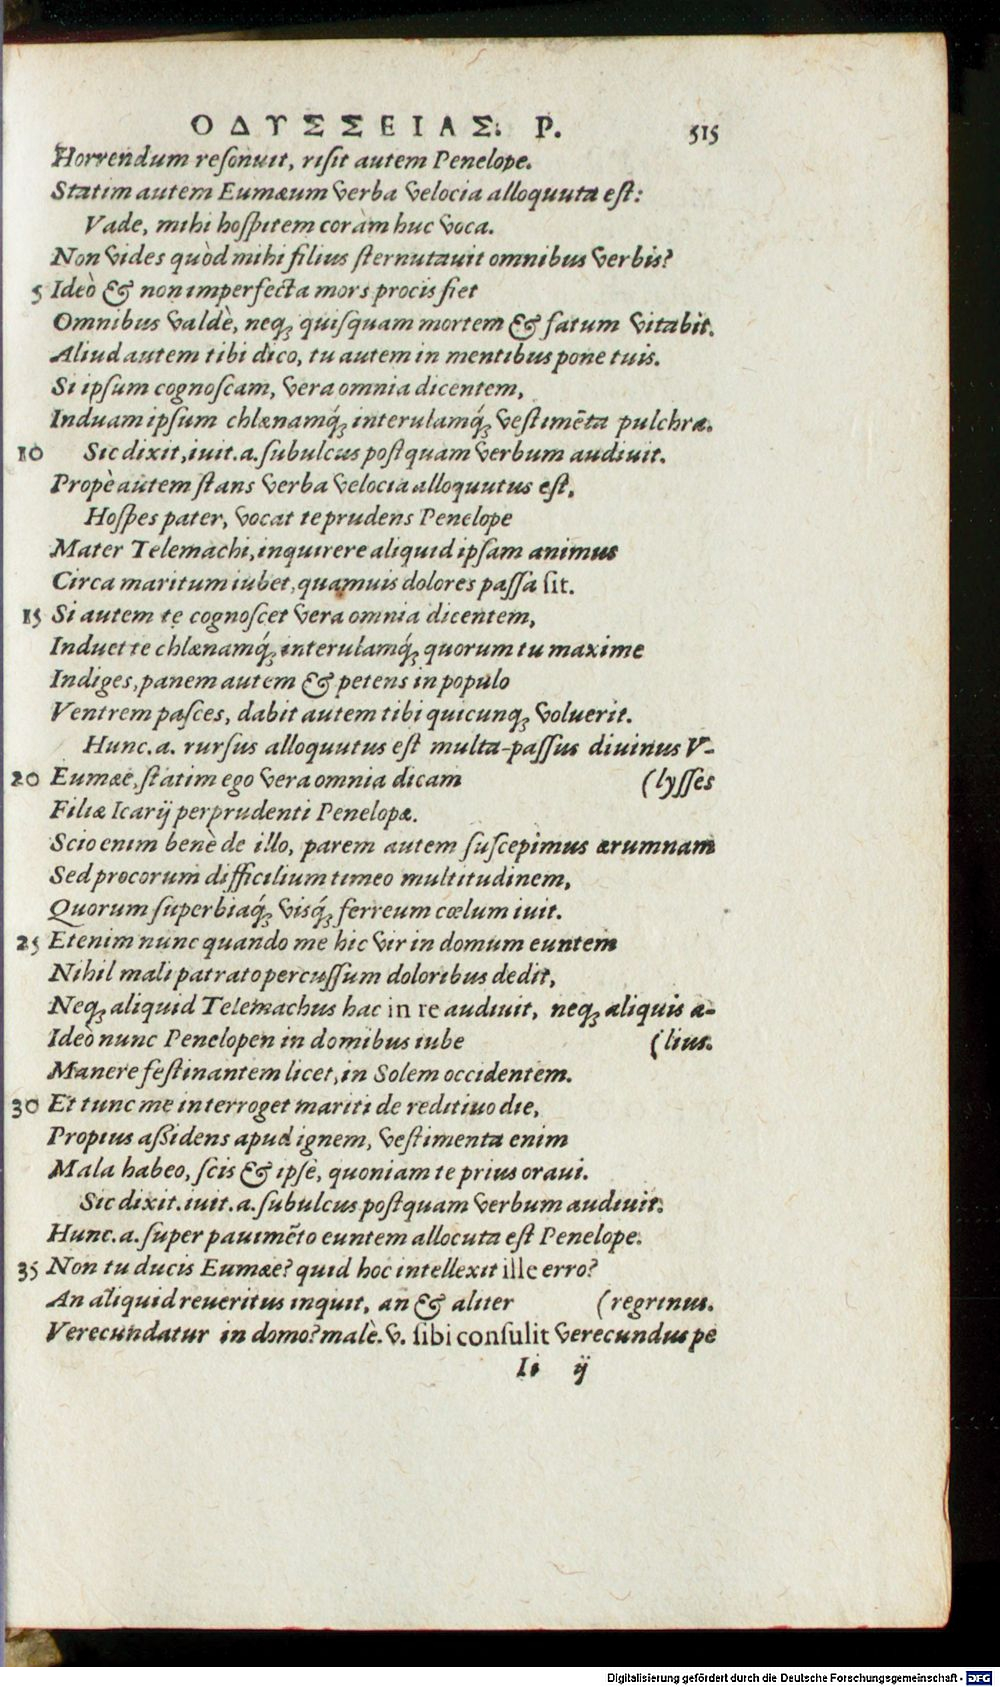 ΟΔΥΣΣΕΙΑΣ. Ρ. 515
Horrendum reſonuit, riſit autem Penelope.
Statim autem Eumæum verba velocia alloquuta eſt:
Vade, mihi hoſpitem coràm huc voca.
Non vides quòd mihi filius ſternutauit omnibus verbis?
5 Ideò & non imperfecta mors procis fiet
Omnibus valdè, neq; quiſquam mortem & fatum vitabit.
Aliud autem tibi dico, tu autem in mentibus pone tuis.
Si ipſum cognoſcam, vera omnia dicentem,
Induam ipſum chlænamq́; interulamq́; veſtimẽta pulchra.
10 Sic dixit, iuit. a. ſubulcus poſtquam verbum audiuit.
Propè autem ſtans verba velocia alloquutus eſt,
Hoſpes pater, vocat te prudens Penelope
Mater Telemachi, inquirere aliquid ipſam animus
Circa maritum iubet, quamuis dolores paſſa ſit.
15 Si autem te cognoſcet vera omnia dicentem,
Induet te chlænamq́; interulamq́; quorum tu maxime
Indiges, panem autem & petens in populo
Ventrem paſces, dabit autem tibi quicunq; voluerit.
Hunc. a. rurſus alloquutus eſt multa-paſſus diuinus V-
20 Eumæe, ſtatim ego vera omnia dicam (lyſſes
Filiæ Icarij perprudenti Penelopæ.
Scio enim benè de illo, parem autem ſuſcepimus ærumnam
Sed procorum difficilium timeo multitudinem,
Quorum ſuperbiaq́; viſq́; ferreum cœlum iuit.
25 Etenim nunc quando me hic vir in domum euntem
Nihil mali patrato percuſſum doloribus dedit,
Neq; aliquid Telemachus hac in re audiuit, neq; aliquis a-
Ideò nunc Penelopen in domibus iube (lius.
Manere feſtinantem licet, in Solem occidentem.
30 Et tunc me interroget mariti de reditiuo die,
Propius aſſidens apud ignem, veſtimenta enim
Mala habeo, ſcis & ipſe, quoniam te prius oraui.
Sic dixit. iuit. a. ſubulcus poſtquam verbum audiuit.
Hunc. a. ſuper pauimẽto euntem allocuta eſt Penelope.
35 Non tu ducis Eumæe? quid hoc intellexit ille erro?
An aliquid reueritus inquit, an & aliter (regrinus.
Verecundatur in domo? malè. v. ſibi conſulit verecundus pe
Ii ij
Digitalisierung gefördert durch die Deutsche Forschungsgemeinschaft - DFG